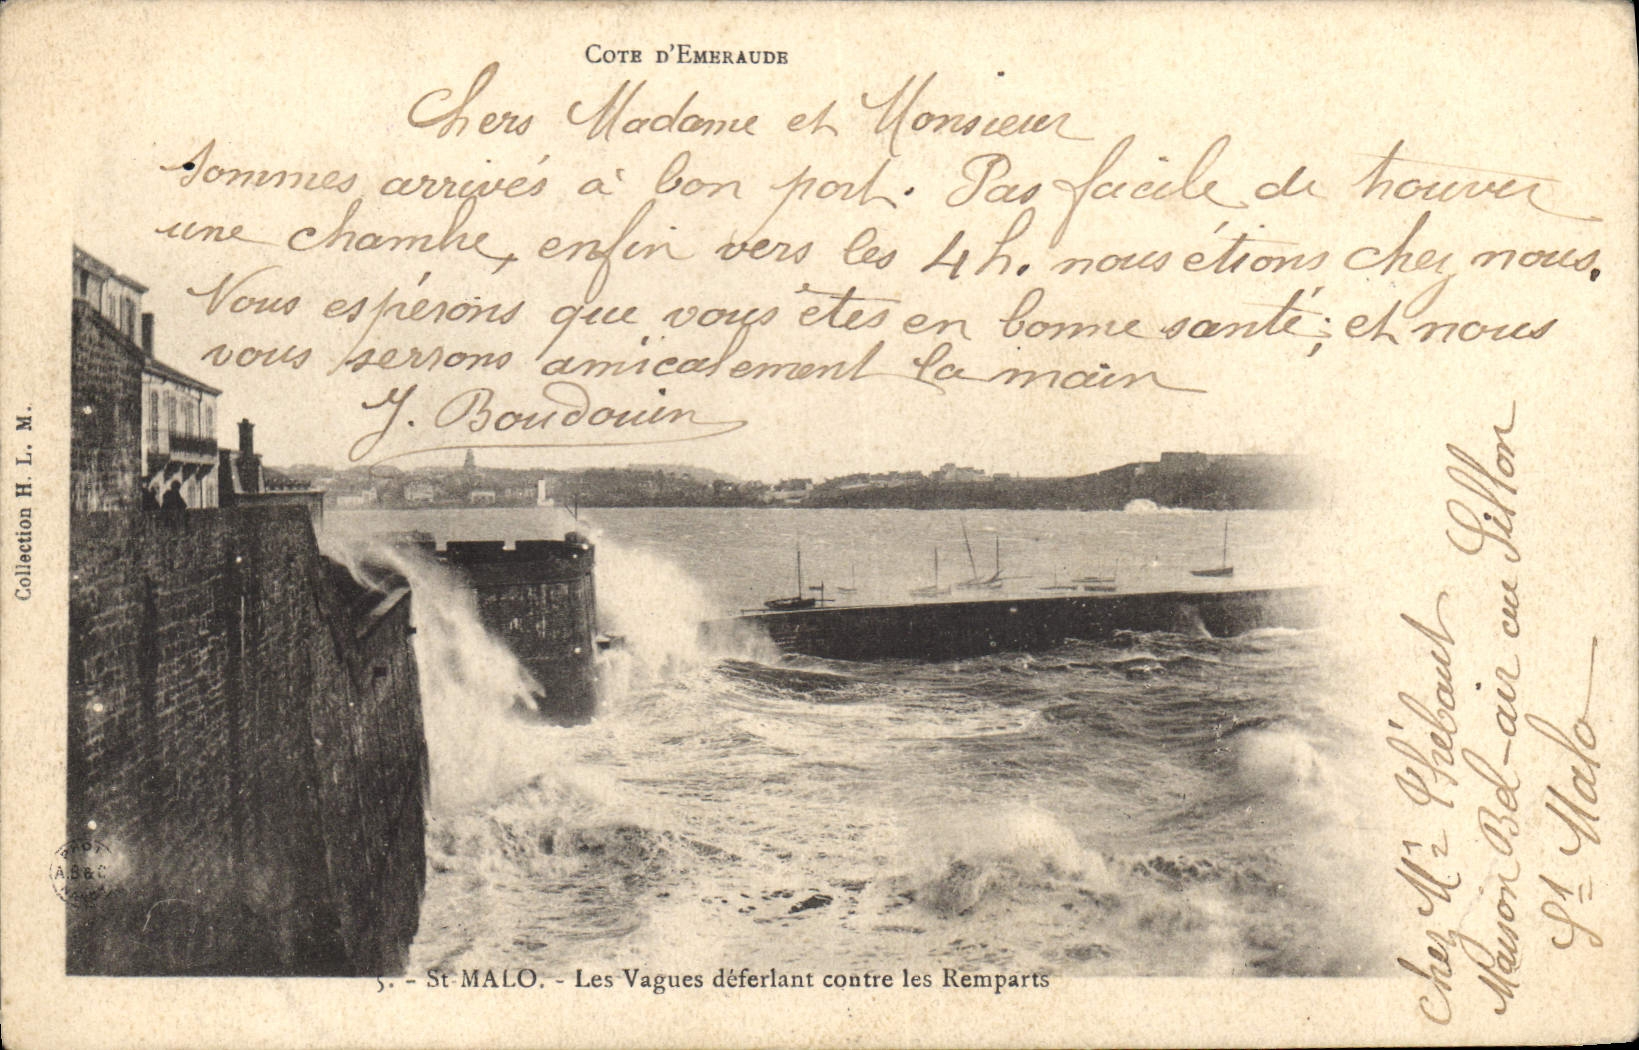 COTE D'EMERAUDE
Chers Madame et Monsieur
Sommes arrivés à bon port. Pas facile de trouver
une chambre, enfin vers les 4 h. nous étions chez nous.
Nous espérons que vous êtes en bonne santé; et nous
vous serrons amicalement la main
J. Baudouin
Collection H. L. M.
Chez Mr Thébault
Maison Bel-air au Sillon
St Malo
A.B & C
5. - St MALO. - Les Vagues déferlant contre les Remparts